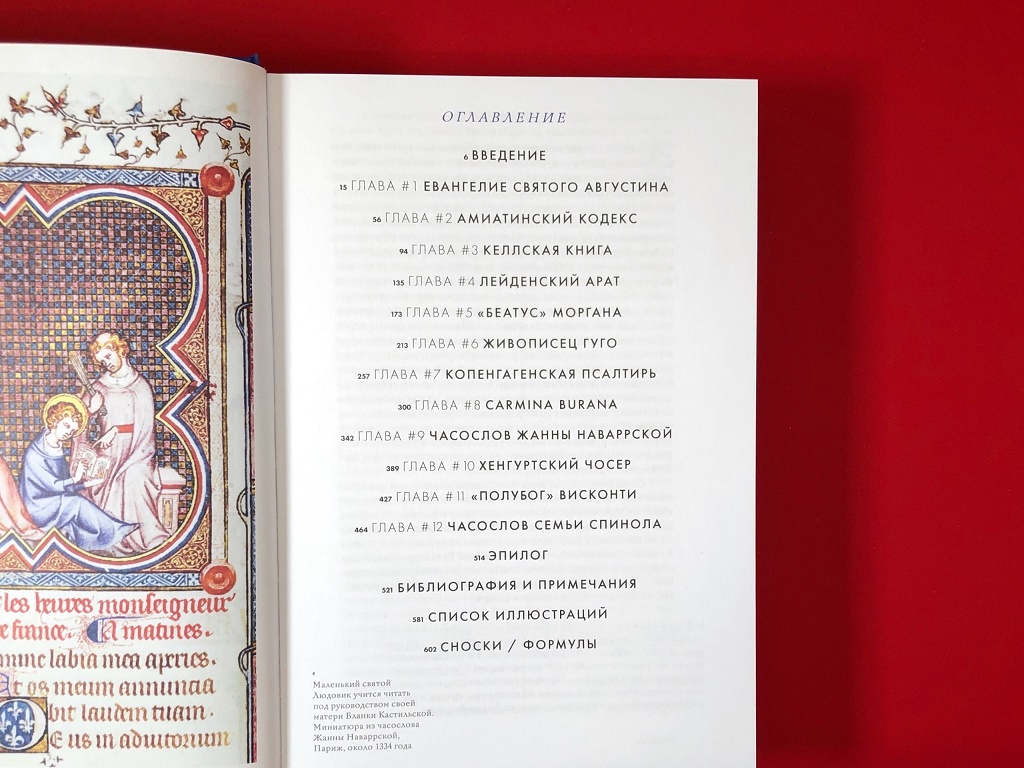 les heures monseigneur
e france. A matines.
labia mea aperies.
Et os meum annuncia
bit laudem tuam.
Deus in adiutorium
ОГЛАВЛЕНИЕ
6 ВВЕДЕНИЕ
15 ГЛАВА #1 ЕВАНГЕЛИЕ СВЯТОГО АВГУСТИНА
56 ГЛАВА #2 АМИАТИНСКИЙ КОДЕКС
94 ГЛАВА #3 КЕЛЛСКАЯ КНИГА
135 ГЛАВА #4 ЛЕЙДЕНСКИЙ АРАТ
173 ГЛАВА #5 «БЕАТУС» МОРГАНА
213 ГЛАВА #6 ЖИВОПИСЕЦ ГУГО
257 ГЛАВА #7 КОПЕНГАГЕНСКАЯ ПСАЛТИРЬ
300 ГЛАВА #8 CARMINA BURANA
342 ГЛАВА #9 ЧАСОСЛОВ ЖАННЫ НАВАРРСКОЙ
389 ГЛАВА #10 ХЕНГУРТСКИЙ ЧОСЕР
427 ГЛАВА #11 «ПОЛУБОГ» ВИСКОНТИ
464 ГЛАВА #12 ЧАСОСЛОВ СЕМЬИ СПИНОЛА
514 ЭПИЛОГ
521 БИБЛИОГРАФИЯ И ПРИМЕЧАНИЯ
581 СПИСОК ИЛЛЮСТРАЦИЙ
602 СНОСКИ / ФОРМУЛЫ
Маленький святой
Людовик учится читать
под руководством своей
матери Бланки Кастильской.
Миниатюра из часослова
Жанны Наваррской,
Париж, около 1334 года